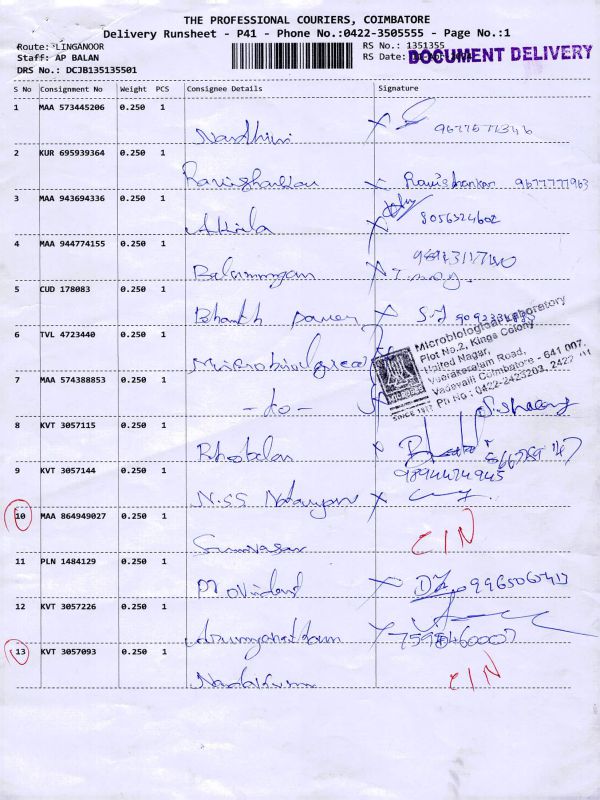 THE PROFESSIONAL COURIERS, COIMBATORE
Delivery Runsheet - P41 - Phone No.:0422-3505555 - Page No.:1
Route: LINGANOOR
RS No.: 1351355
Staff: AP BALAN
RS Date:
DOCUMENT DELIVERY
DRS No.: DCJB135135501
S No Consignment No Weight PCS Consignee Details Signature
1 MAA 573445206 0.250 1
Nandhini X
2 KUR 695939364 0.250 1
Ravishankar X Ravishankar 9677777963
3 MAA 943694336 0.250 1
Akila X 8056524602
4 MAA 944774155 0.250 1
Balamurugan X
5 CUD 178083 0.250 1
Bharath X
6 TVL 4723440 0.250 1
Microbiological
Microbiological Laboratory
Plot No.2, Kings Colony
United Nagar,
Veerakeralam Road,
Vadavalli Coimbatore - 641 007.
Ph No : 0422-2423203, 2422
SINCE
7 MAA 574388853 0.250 1
- do -
8 KVT 3057115 0.250 1
X
9 KVT 3057144 0.250 1
9894474945
N.SS Natarajan X
10 MAA 864949027 0.250 1
Srinivasan CIN
11 PLN 1484129 0.250 1
X 9965067417
12 KVT 3057226 0.250 1
X
13 KVT 3057093 0.250 1
Nandakumar CIN